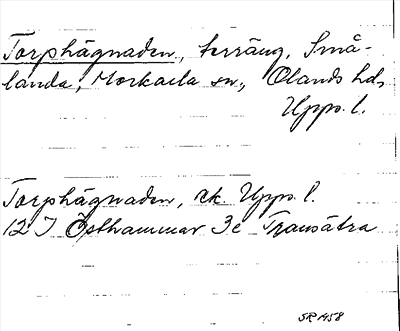 Torphägnaden, terräng, Små-
landa, Morkarla sn, Olands hd,
Upps. l.
Torphägnaden, ek. Upps. l.
12 I Östhammar 3e Transätra
SR 1958